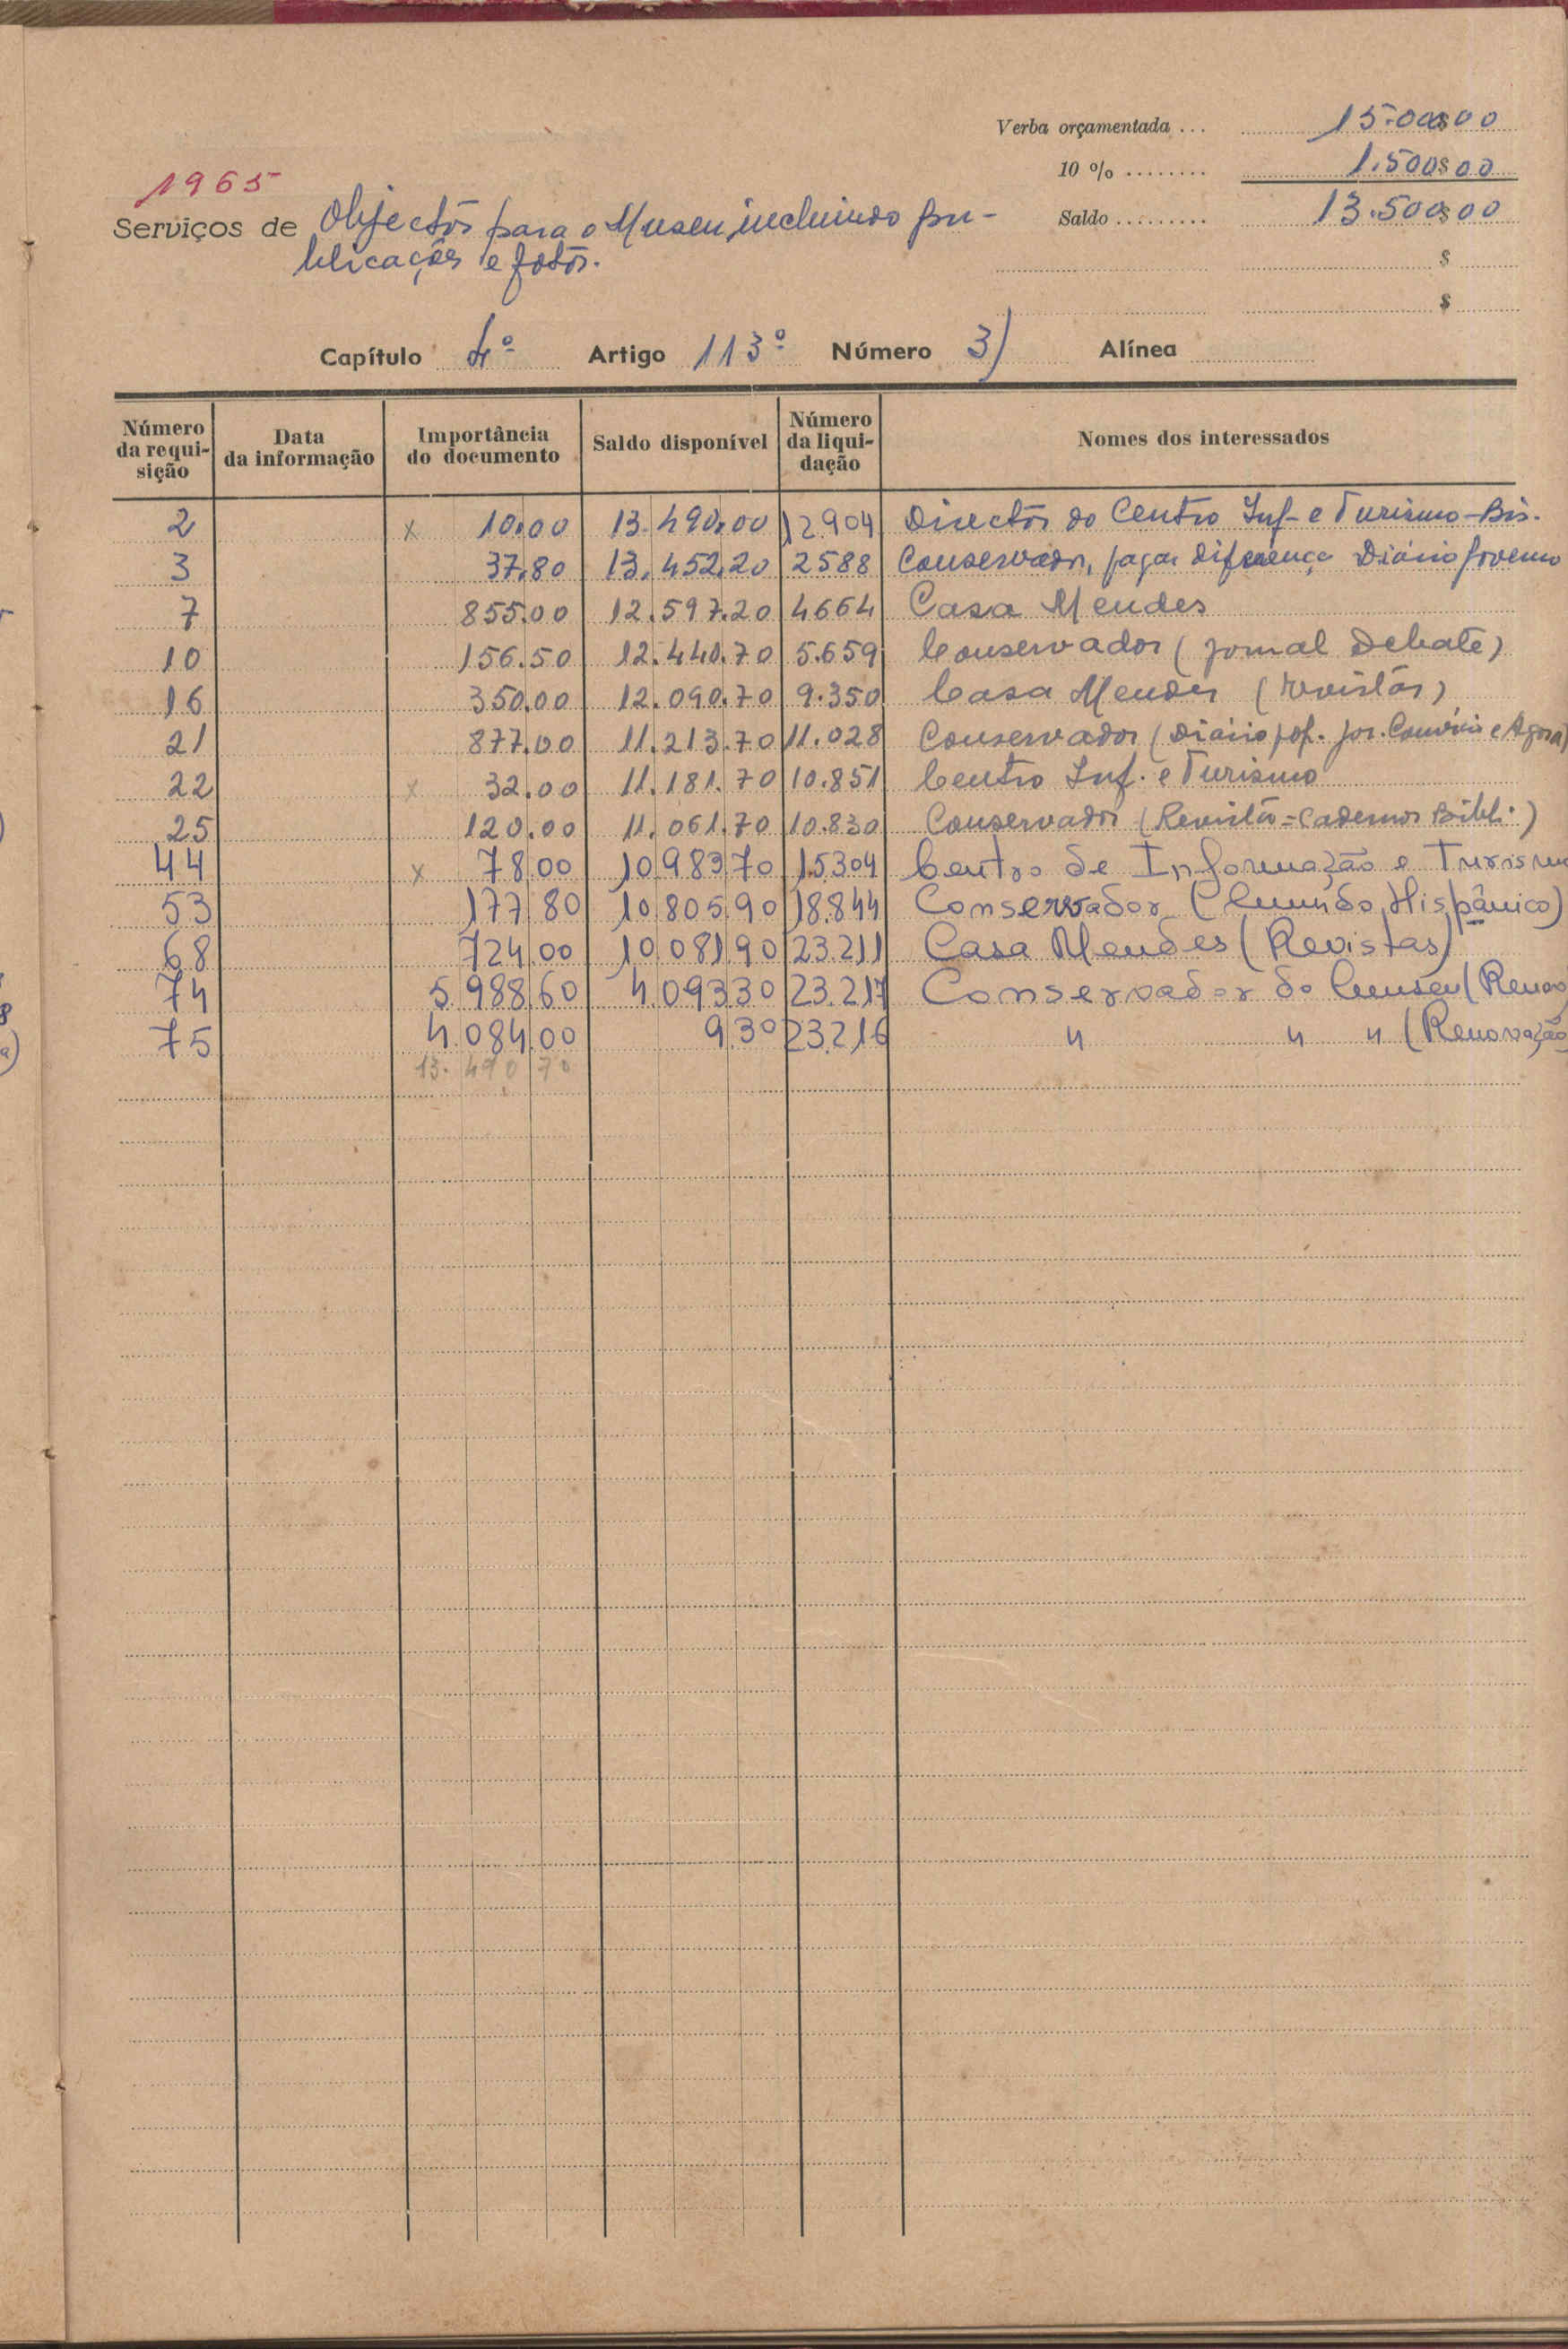 Verba orçamentada ... 15.000$00
1965
10 % ........ 1.500$00
Serviços de Objectos para o Museu, incluindo pu-
Saldo ......... 13.500$00
blicações e fotos.
$
$
Capítulo 4º Artigo 113º Número 3) Alínea
Número da requi- sição Data da informação Importância do documento Saldo disponível Número da liqui- dação Nomes dos interessados
2 x 10.00 13.490.00 12904 Director do Centro Inf. e Turismo-Bis.
3 37.80 13.452.20 2588 Conservador, pagar diferença Diário Governo
7 855.00 12.597.20 4664 Casa Mendes
10 156.50 12.440.70 5.659 Conservador (jornal Debate)
16 350.00 12.090.70 9.350 Casa Mendes (revistas)
21 877.00 11.213.70 11.028 Conservador (Diário pop. jor. Convívio e Agora)
22 x 32.00 11.181.70 10.851 Centro Inf. e Turismo
25 120.00 11.061.70 10.830 Conservador (Revista=Cadernos Bibli.)
44 x 78.00 10.983.70 15304 Centro de Informação e Turismo
53 177.80 10.805.90 18.844 Conservador (Mundo Hispânico)
68 724.00 10.081.90 23.211 Casa Mendes (Revistas)
74 5.988.60 4.093.30 23.217 Conservador do Museu (Renov
75 4.084.00 9.30 23.216 " " " (Renovação
13.490.70